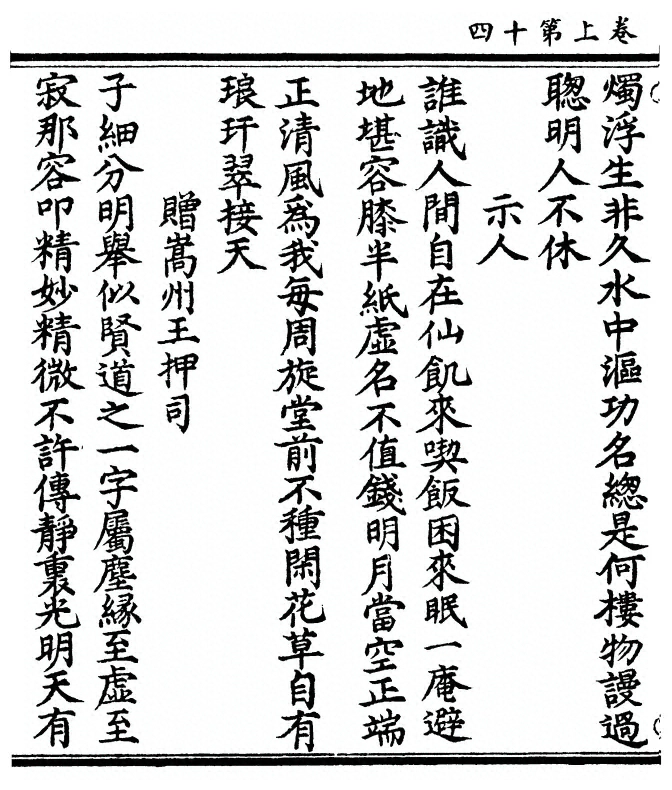 卷上第十四
燭浮生非久水中漚功名總是何樓物謾過
聰明人不休
示人
誰識人間自在仙飢來喫飯困來眠一庵避
地堪容膝半紙虛名不值錢明月當空正端
正清風爲我每周旋堂前不種閑花草自有
琅玕翠接天
贈嵩州王押司
子細分明舉似賢道之一字屬塵緣至虛至
寂那容叩精妙精微不許傳靜裏光明天有